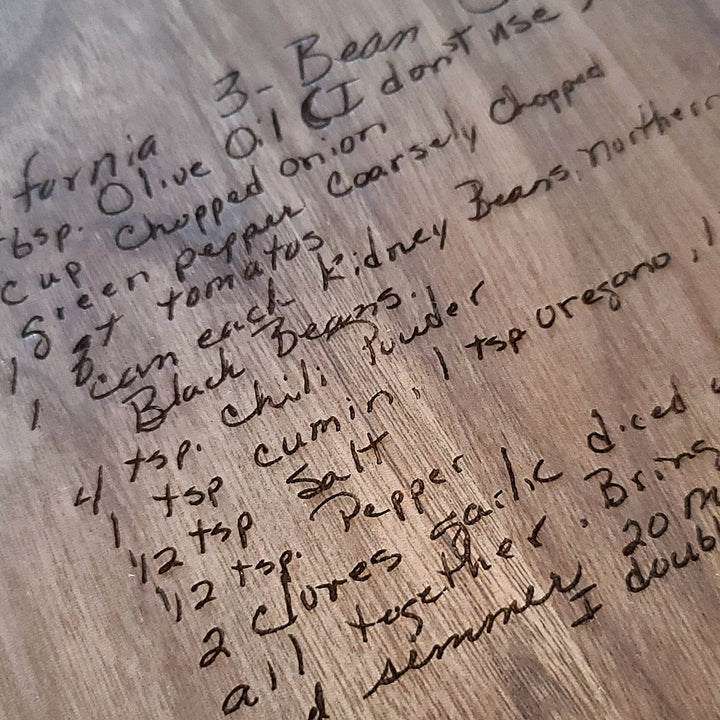 fornia 3-Bean
tbsp. Olive Oil (I don't use
cup Chopped onion
green pepper coarsely Chopped
1 8 qt tomatos
1 can each Kidney Beans, northern
Black Beans.
4 tsp. chili Powder
1 tsp cumin, 1 tsp oregano, 1
1/2 tsp Salt
1/2 tsp. Pepper
2 cloves garlic diced
all together. Bring
d simmer 20 m
I doubl